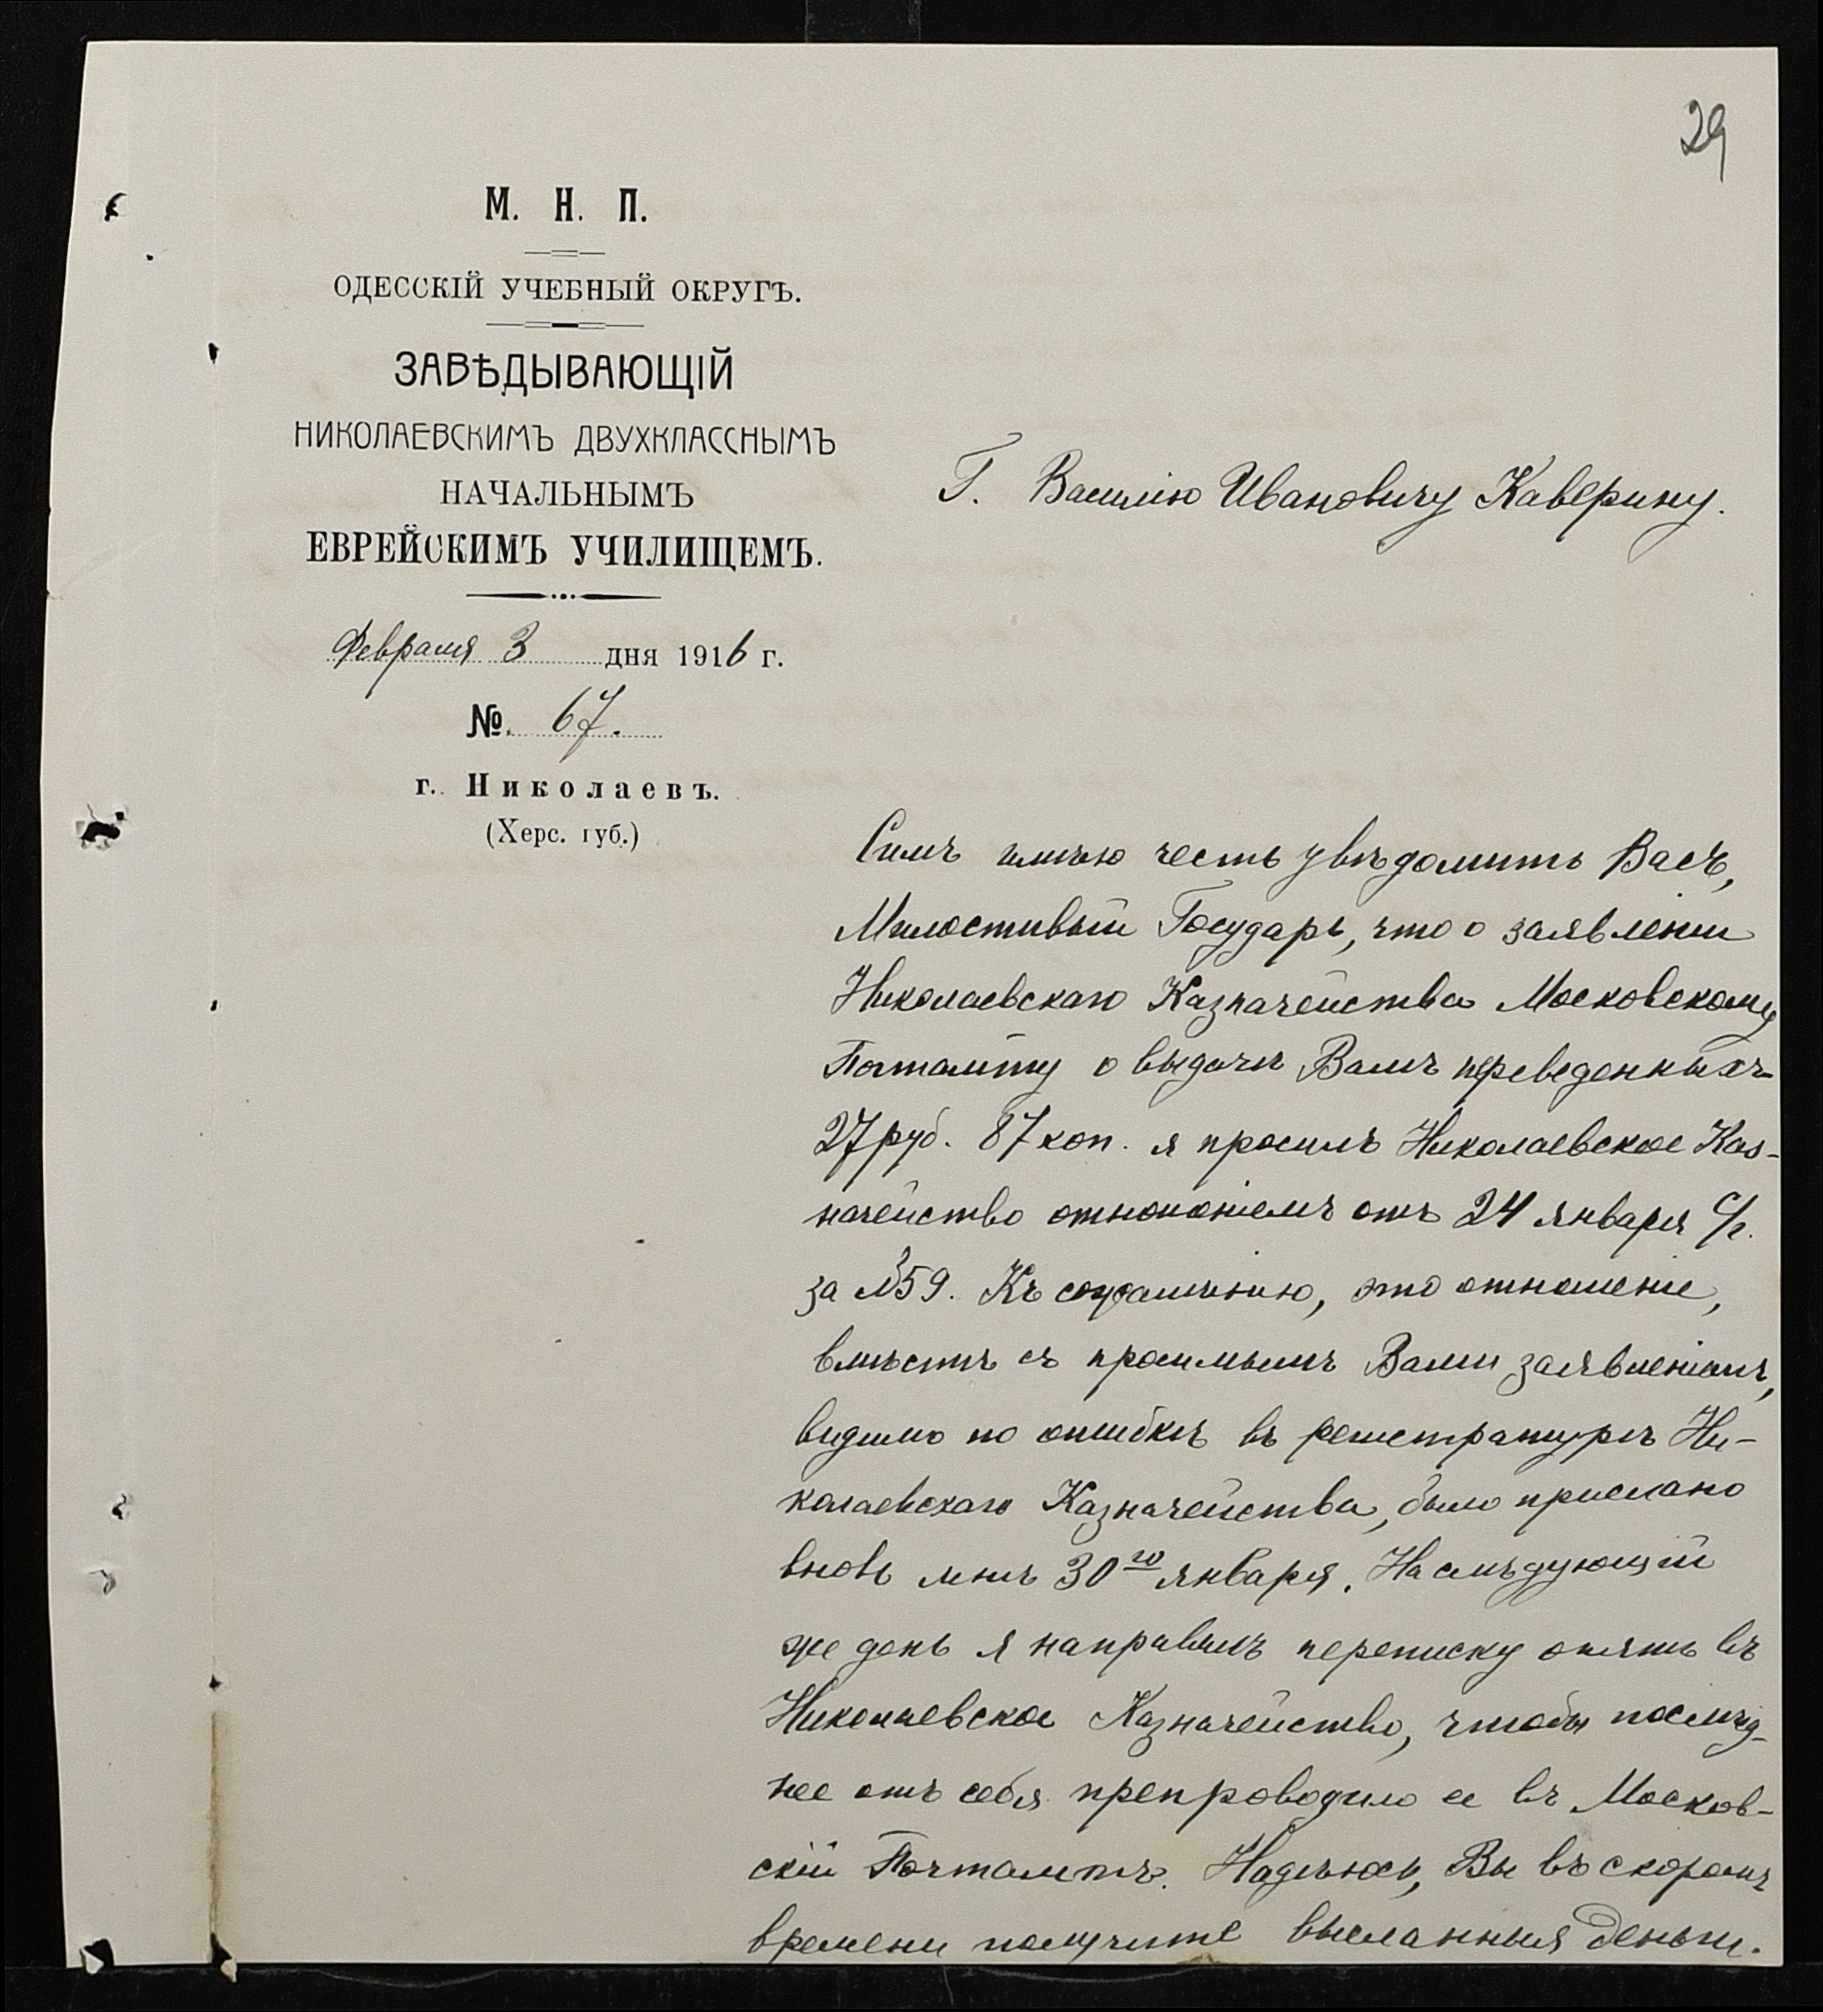 29
М. Н. П.
ОДЕССКІЙ УЧЕБНЫЙ ОКРУГЪ.
ЗАВѢДЫВАЮЩІЙ
НИКОЛАЕВСКИМЪ ДВУХКЛАССНЫМЪ
НАЧАЛЬНЫМЪ
ЕВРЕЙСКИМЪ УЧИЛИЩЕМЪ.
Февраля 3 дня 1916 г.
№. 67.
г. Николаевъ.
(Херс. губ.)
Г. Василію Ивановичу Каверину.
Симъ имѣю честь увѣдомить Васъ,
Милостивый Государь, что о заявленіи
Николаевскаго Казначейства Московскому
Почтамту о выдачѣ Вамъ переведенныхъ
27 руб. 87 коп. я просилъ Николаевское Каз-
начейство отношеніемъ отъ 24 января с/г.
за №59. Къ сожалѣнію, это отношеніе,
вмѣстѣ съ просимымъ Вами заявленіемъ,
видимо по ошибкѣ въ регистратурѣ Ни-
колаевскаго Казначейства, было прислано
вновь мнѣ 30го января. На слѣдующій
же день я направилъ переписку опять въ
Николаевское Казначейство, чтобы послѣд-
нее отъ себя препроводило ее въ Москов-
скій Почтамтъ. Надѣюсь, Вы въ скоромъ
времени получите высланныя деньги.